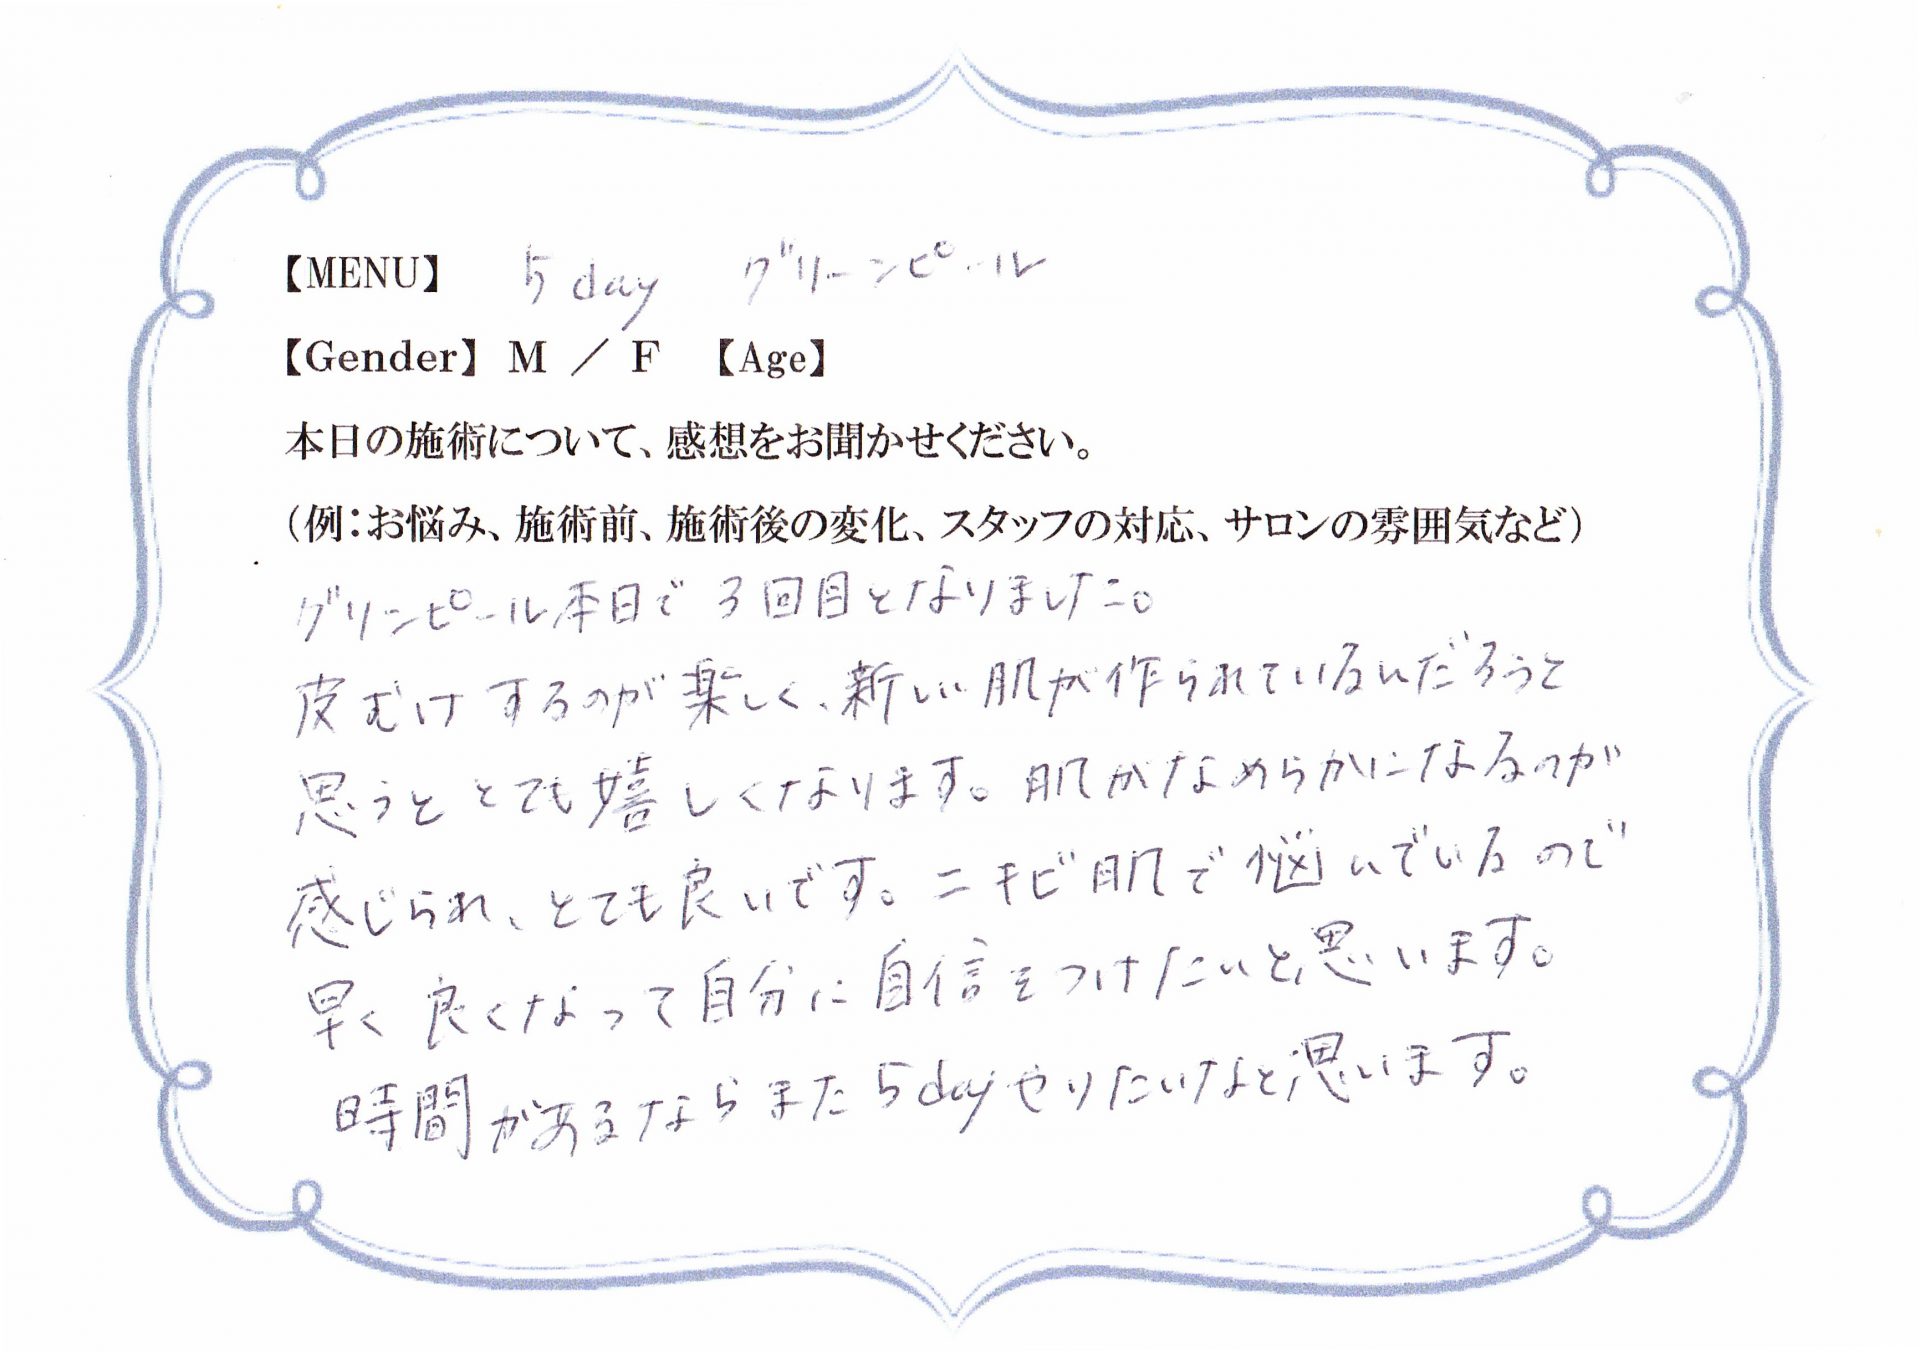 【MENU】 5day グリーンピール
【Gender】 M ／ F 【Age】
本日の施術について、感想をお聞かせください。
（例：お悩み、施術前、施術後の変化、スタッフの対応、サロンの雰囲気など）
グリンピール本日で3回目となりました。
皮むけするのが楽しく、新しい肌が作られているんだろうと
思うととても嬉しくなります。肌がなめらかになるのが
感じられ、とても良いです。ニキビ肌で悩んでいるので
早く良くなって自分に自信をつけたいと思います。
時間があるならまた5dayやりたいなと思います。